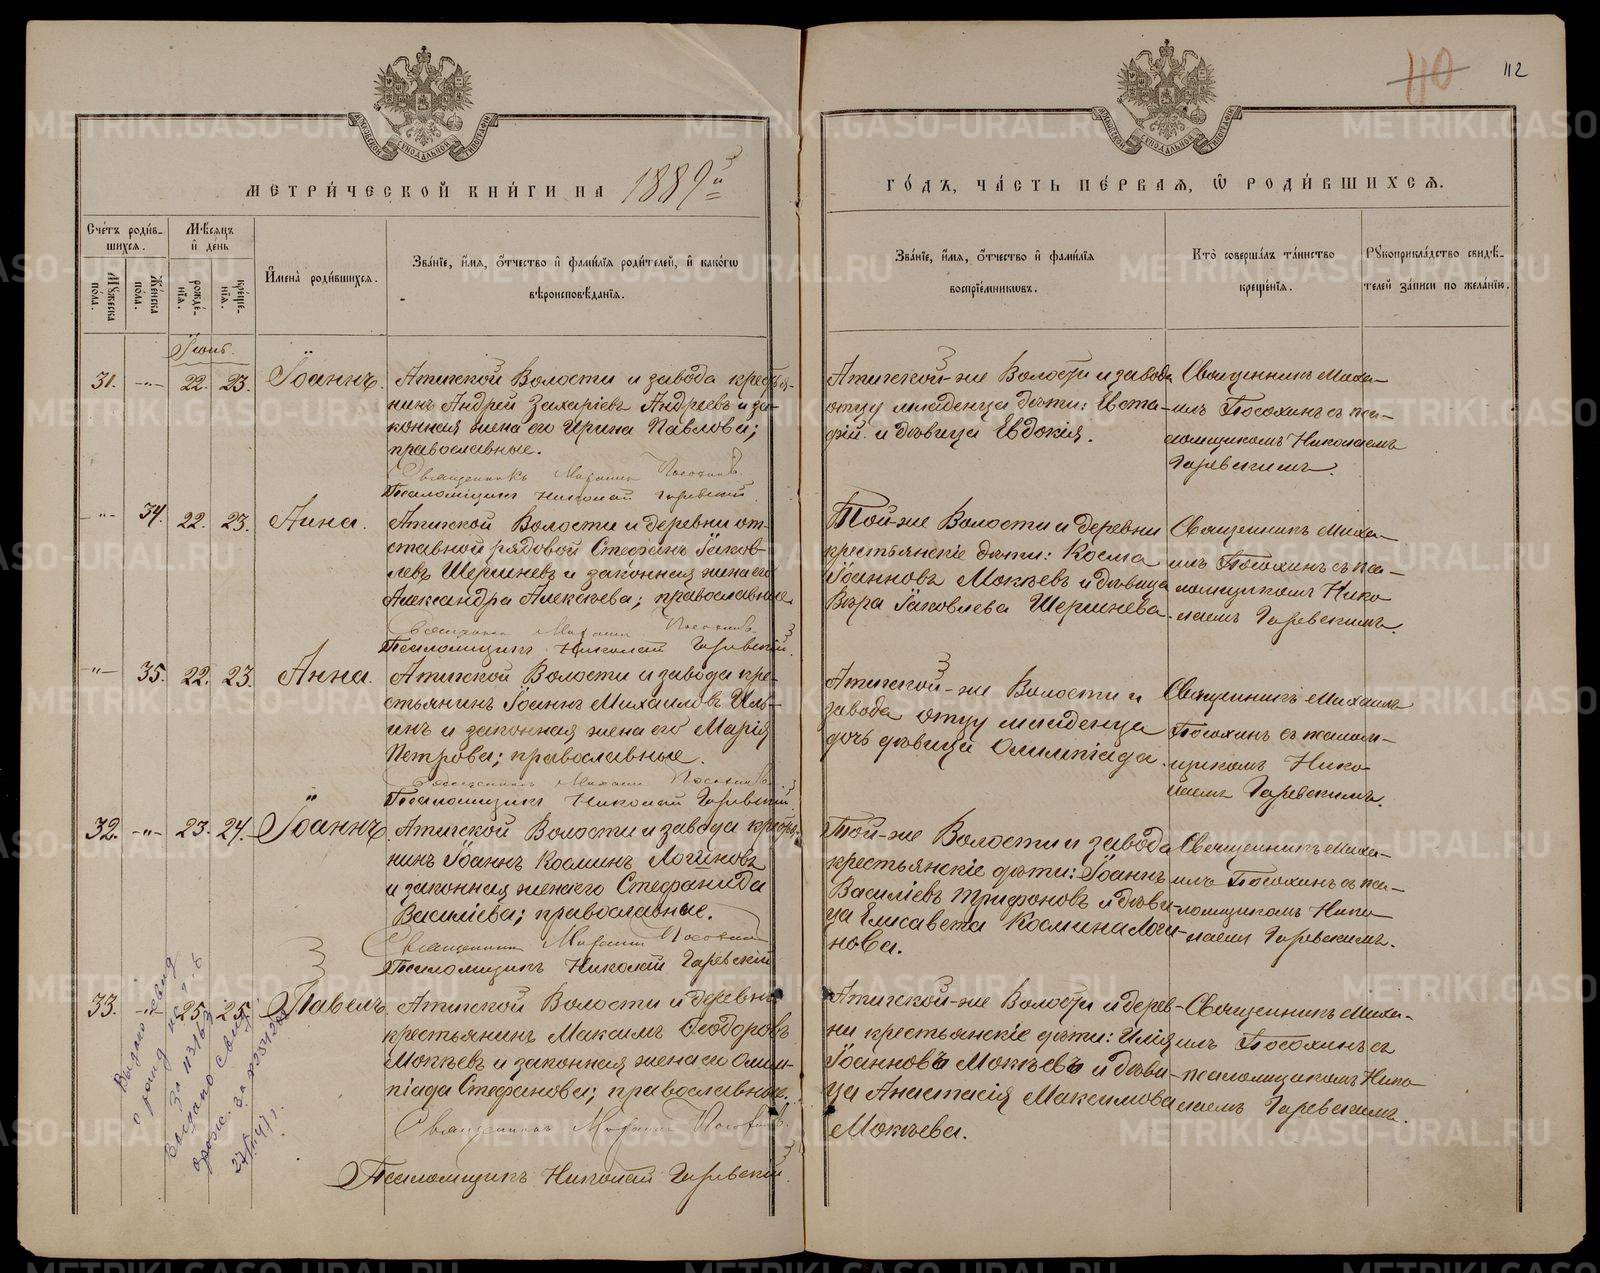 110
112
МЕТРИЧЕСКОЙ КНИГИ НА 1889й
ГОДЪ, ЧАСТЬ ПЕРВАЯ, Ѡ РОДИВШИХСЯ.
Счетъ родив-
шихся.
Мужеска пола.
Женска пола.
Мѣсяцъ
и день
рожде-
нія.
креще-
нія.
Имена родившихся.
Званіе, имя, отчество и фамилія родителей, и какогѡ
вѣроисповѣданія.
Званіе, имя, отчество и фамилія
воспріемникѡвъ.
Кто совершалъ таинство
крещенія.
Рукоприкладство свидѣ-
телей записи по желанію.
Іюнь.
31. -"- 22. 23. Іоаннъ.
Атигской Волости и завода крестья-
нинъ Андрей Захаріевъ Андреевъ и за-
конная жена его Ирина Павлова;
православные.
Священникъ Михаилъ Посохинъ.
Псаломщикъ Николай Гаревскій.
Атигской-же Волости и завода
отцу младенца дѣти: Евста-
фій и дѣвица Евдокія.
Священникъ Миха-
илъ Посохинъ съ пса-
ломщикомъ Николаемъ
Гаревскимъ.
-"- 34. 22. 23. Анна.
Атигской Волости и деревни от-
ставной рядовой Стефанъ Іаков-
левъ Шершневъ и законная жена его
Александра Алексѣева; православные.
Священникъ Михаилъ Посохинъ.
Псаломщикъ Николай Гаревскій.
Той-же Волости и деревни
крестьянскіе дѣти: Косма
Іоанновъ Мокѣевъ и дѣвица
Вѣра Іаковлева Шершнева.
Священникъ Миха-
илъ Посохинъ съ пса-
ломщикомъ Нико
лаемъ Гаревскимъ.
-"- 35. 22. 23. Анна.
Атигской Волости и завода кре-
стьянинъ Іоаннъ Михаиловъ Иль-
инъ и законная жена его Марія
Петрова; православные.
Священникъ Михаилъ Посохинъ
Псаломщикъ Николай Гаревскій.
Атигской-же Волости и
завода отцу младенца
дочь дѣвица Олимпіада.
Священникъ Михаилъ
Посохинъ съ псалом-
щикомъ Нико-
лаемъ Гаревскимъ.
32. -"- 23. 24. Іоаннъ.
Атигской Волости и завода крестья-
нинъ Іоаннъ Косминъ Логиновъ
и законная жена его Стефанида
Василіева; православные.
Священникъ Михаилъ Посохинъ
Псаломщикъ Николай Гаревскій
Той-же Волости и завода
крестьянскіе дѣти: Іоаннъ
Василіевъ Трифоновъ и дѣви-
ца Елисавета Космина Логи-
нова.
Священникъ Миха-
илъ Посохинъ съ пса-
ломщикомъ Нико-
лаемъ Гаревскимъ.
33. -"- 25. 25. Павелъ.
Атигской Волости и деревни
крестьянинъ Максимъ Ѳеодоровъ
Мокѣевъ и законная жена его Олим-
піада Стефанова; православные.
Священникъ Михаилъ Посохинъ.
Псаломщикъ Николай Гаревскій.
Атигской-же Волости и дерев-
ни крестьянскіе дѣти: Илія
Іоанновъ Мокѣевъ и дѣви-
ца Анастасія Максимова
Мокѣева.
Священникъ Миха-
илъ Посохинъ съ
псаломщикомъ Нико-
лаемъ Гаревскимъ.
Выдано
о рожд
за №
Выдано свид.
о рожд. за №